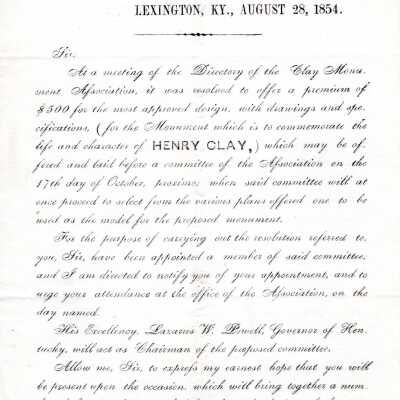 LEXINGTON, KY., AUGUST 28, 1854.
Sir.
At a meeting of the Directory of the Clay Monu-
ment Association, it was resolved to offer a premium of
$500 for the most approved design, with drawings and spe-
cifications, (for the Monument which is to commemorate the
life and character of HENRY CLAY,) which may be of-
fered and laid before a committee of the Association on the
17th day of October, proximo; when said committee will at
once proceed to select from the various plans offered one to be
used as the model for the proposed monument.
For the purpose of carrying out the resolution referred to,
you, Sir, have been appointed a member of said committee,
and I am directed to notify you of your appointment, and to
urge your attendance at the office of the Association, on the
day named.
His Excellency, Lazarus W. Powell, Governor of Ken-
tucky, will act as Chairman of the proposed committee.
Allow me, Sir, to express my earnest hope that you will
be present upon the occasion, which will bring together a num-